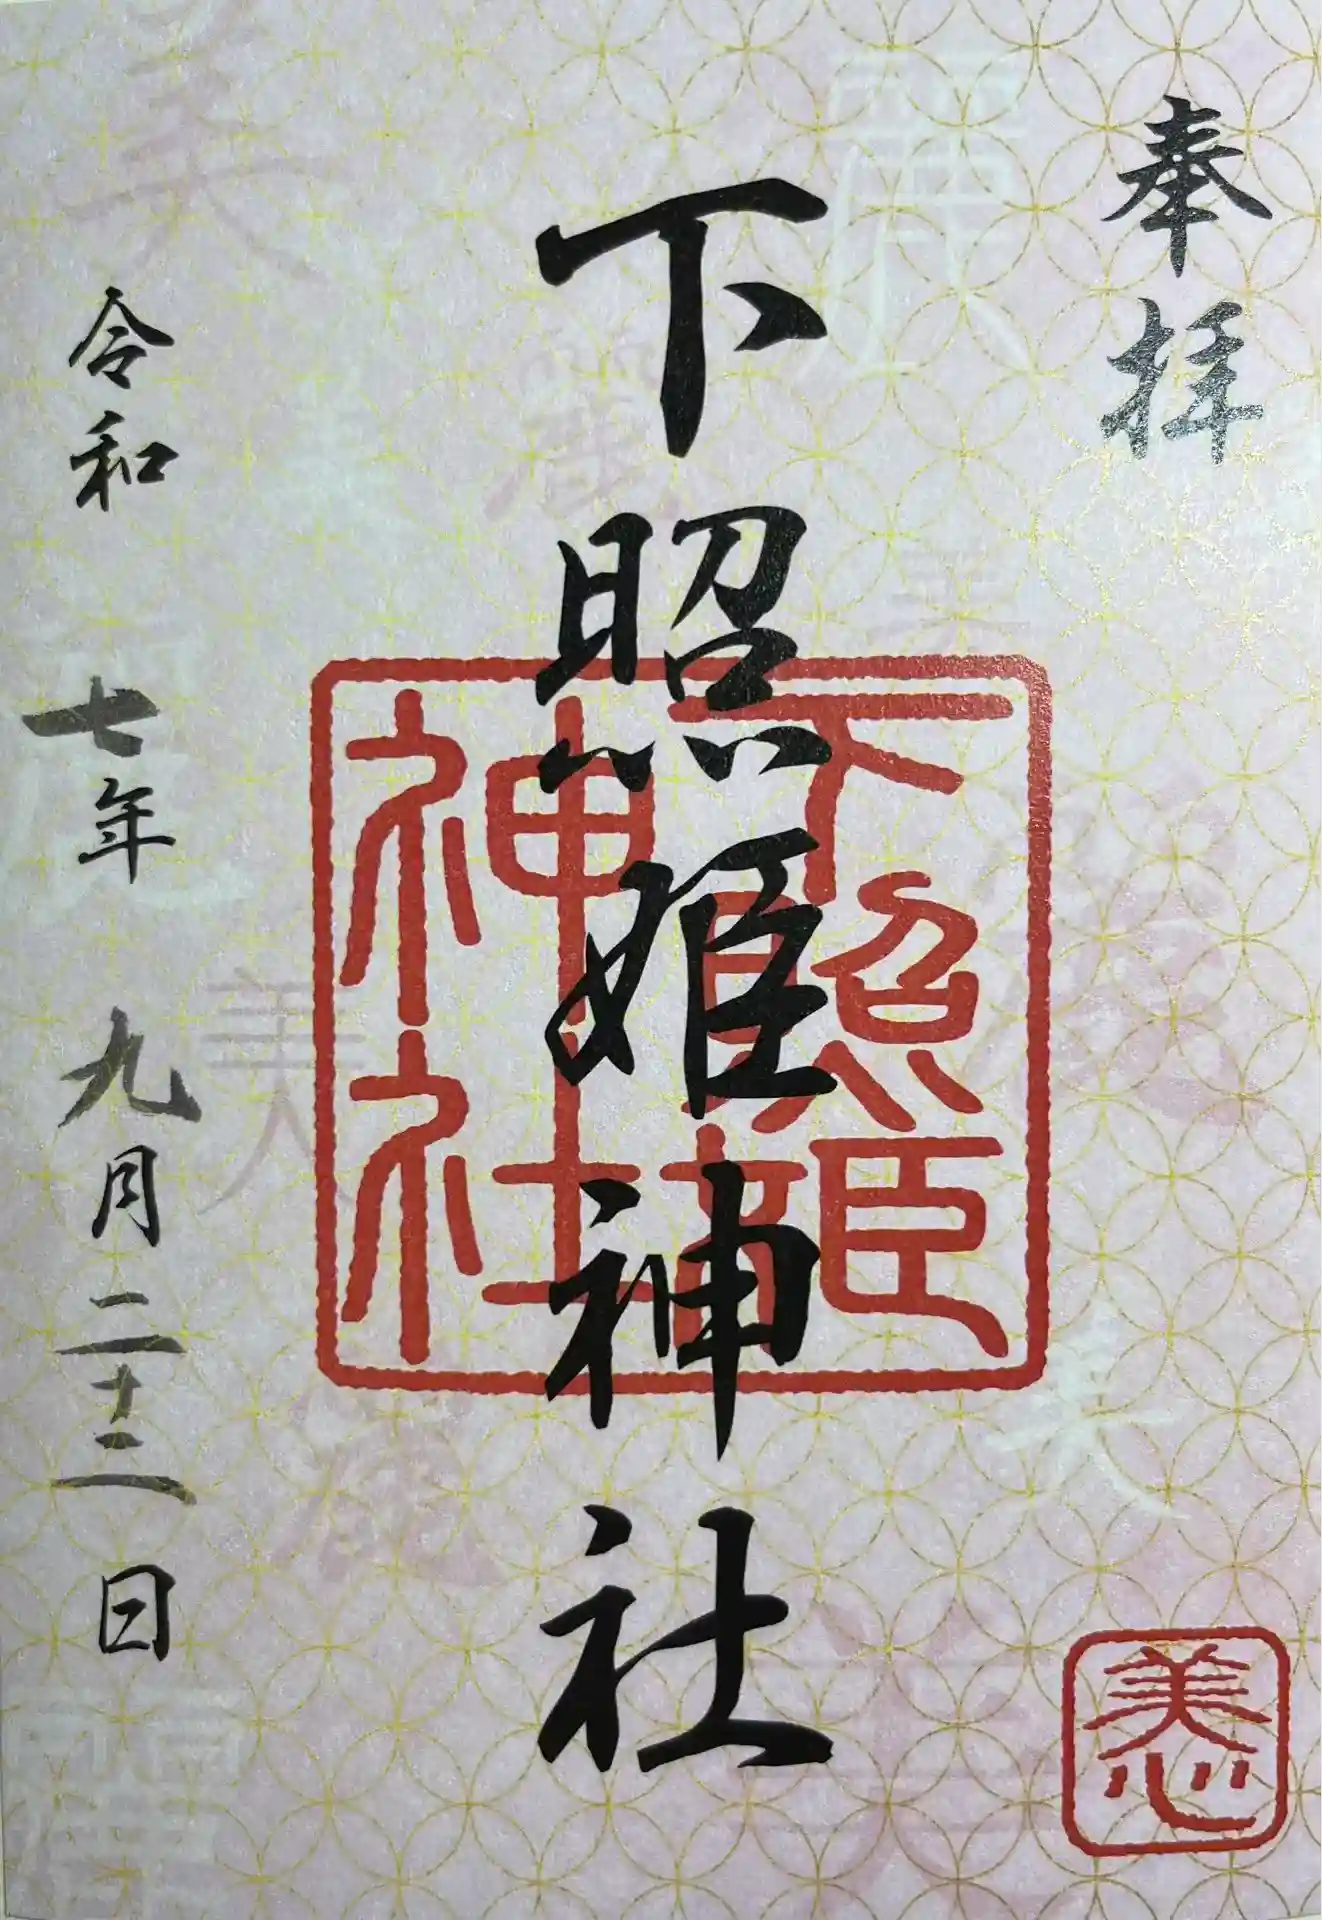 奉拝
下照姫神社
下照姫
神社
令和七年九月二十三日
美心
美人